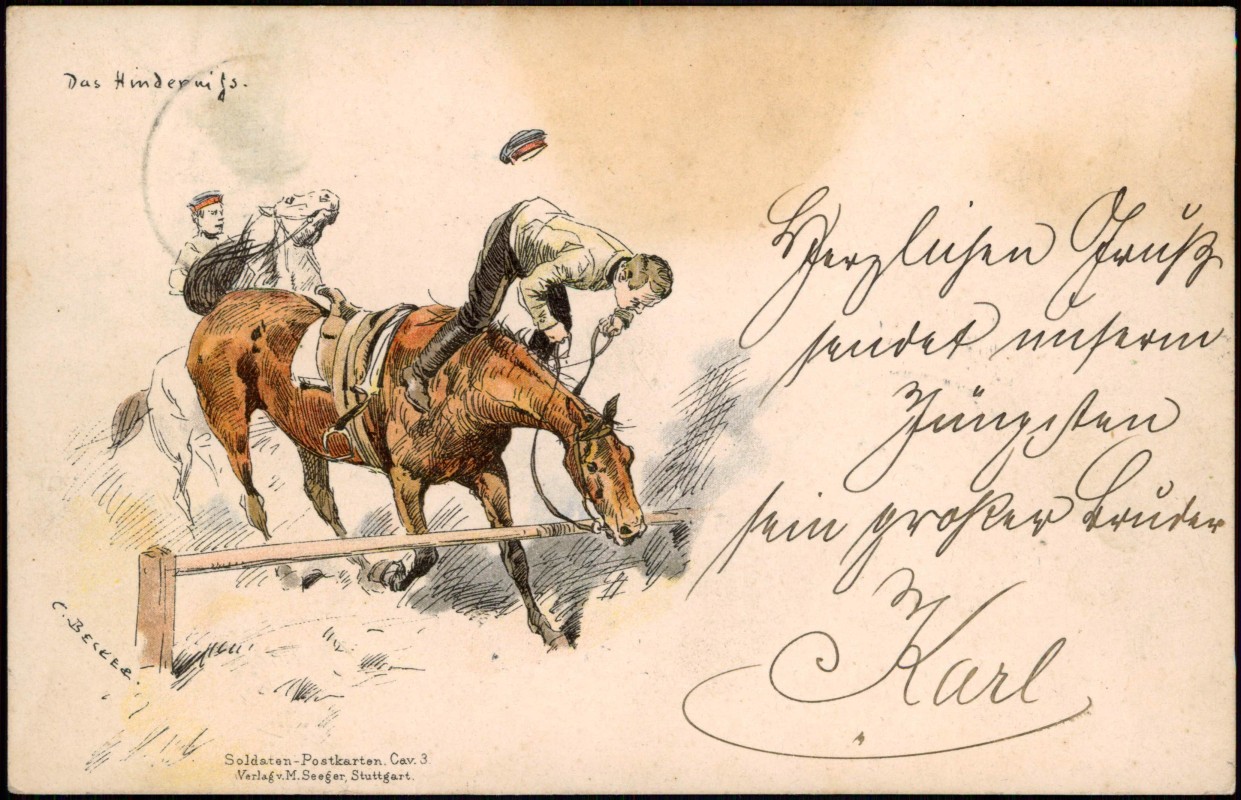 Das Hinderniſs.
Herzlichen Gruß
sendet unserm
Jüngsten
sein großer Bruder
Karl
C. BECKER.
Soldaten-Postkarten. Cav. 3.
Verlag v. M. Seeger, Stuttgart.